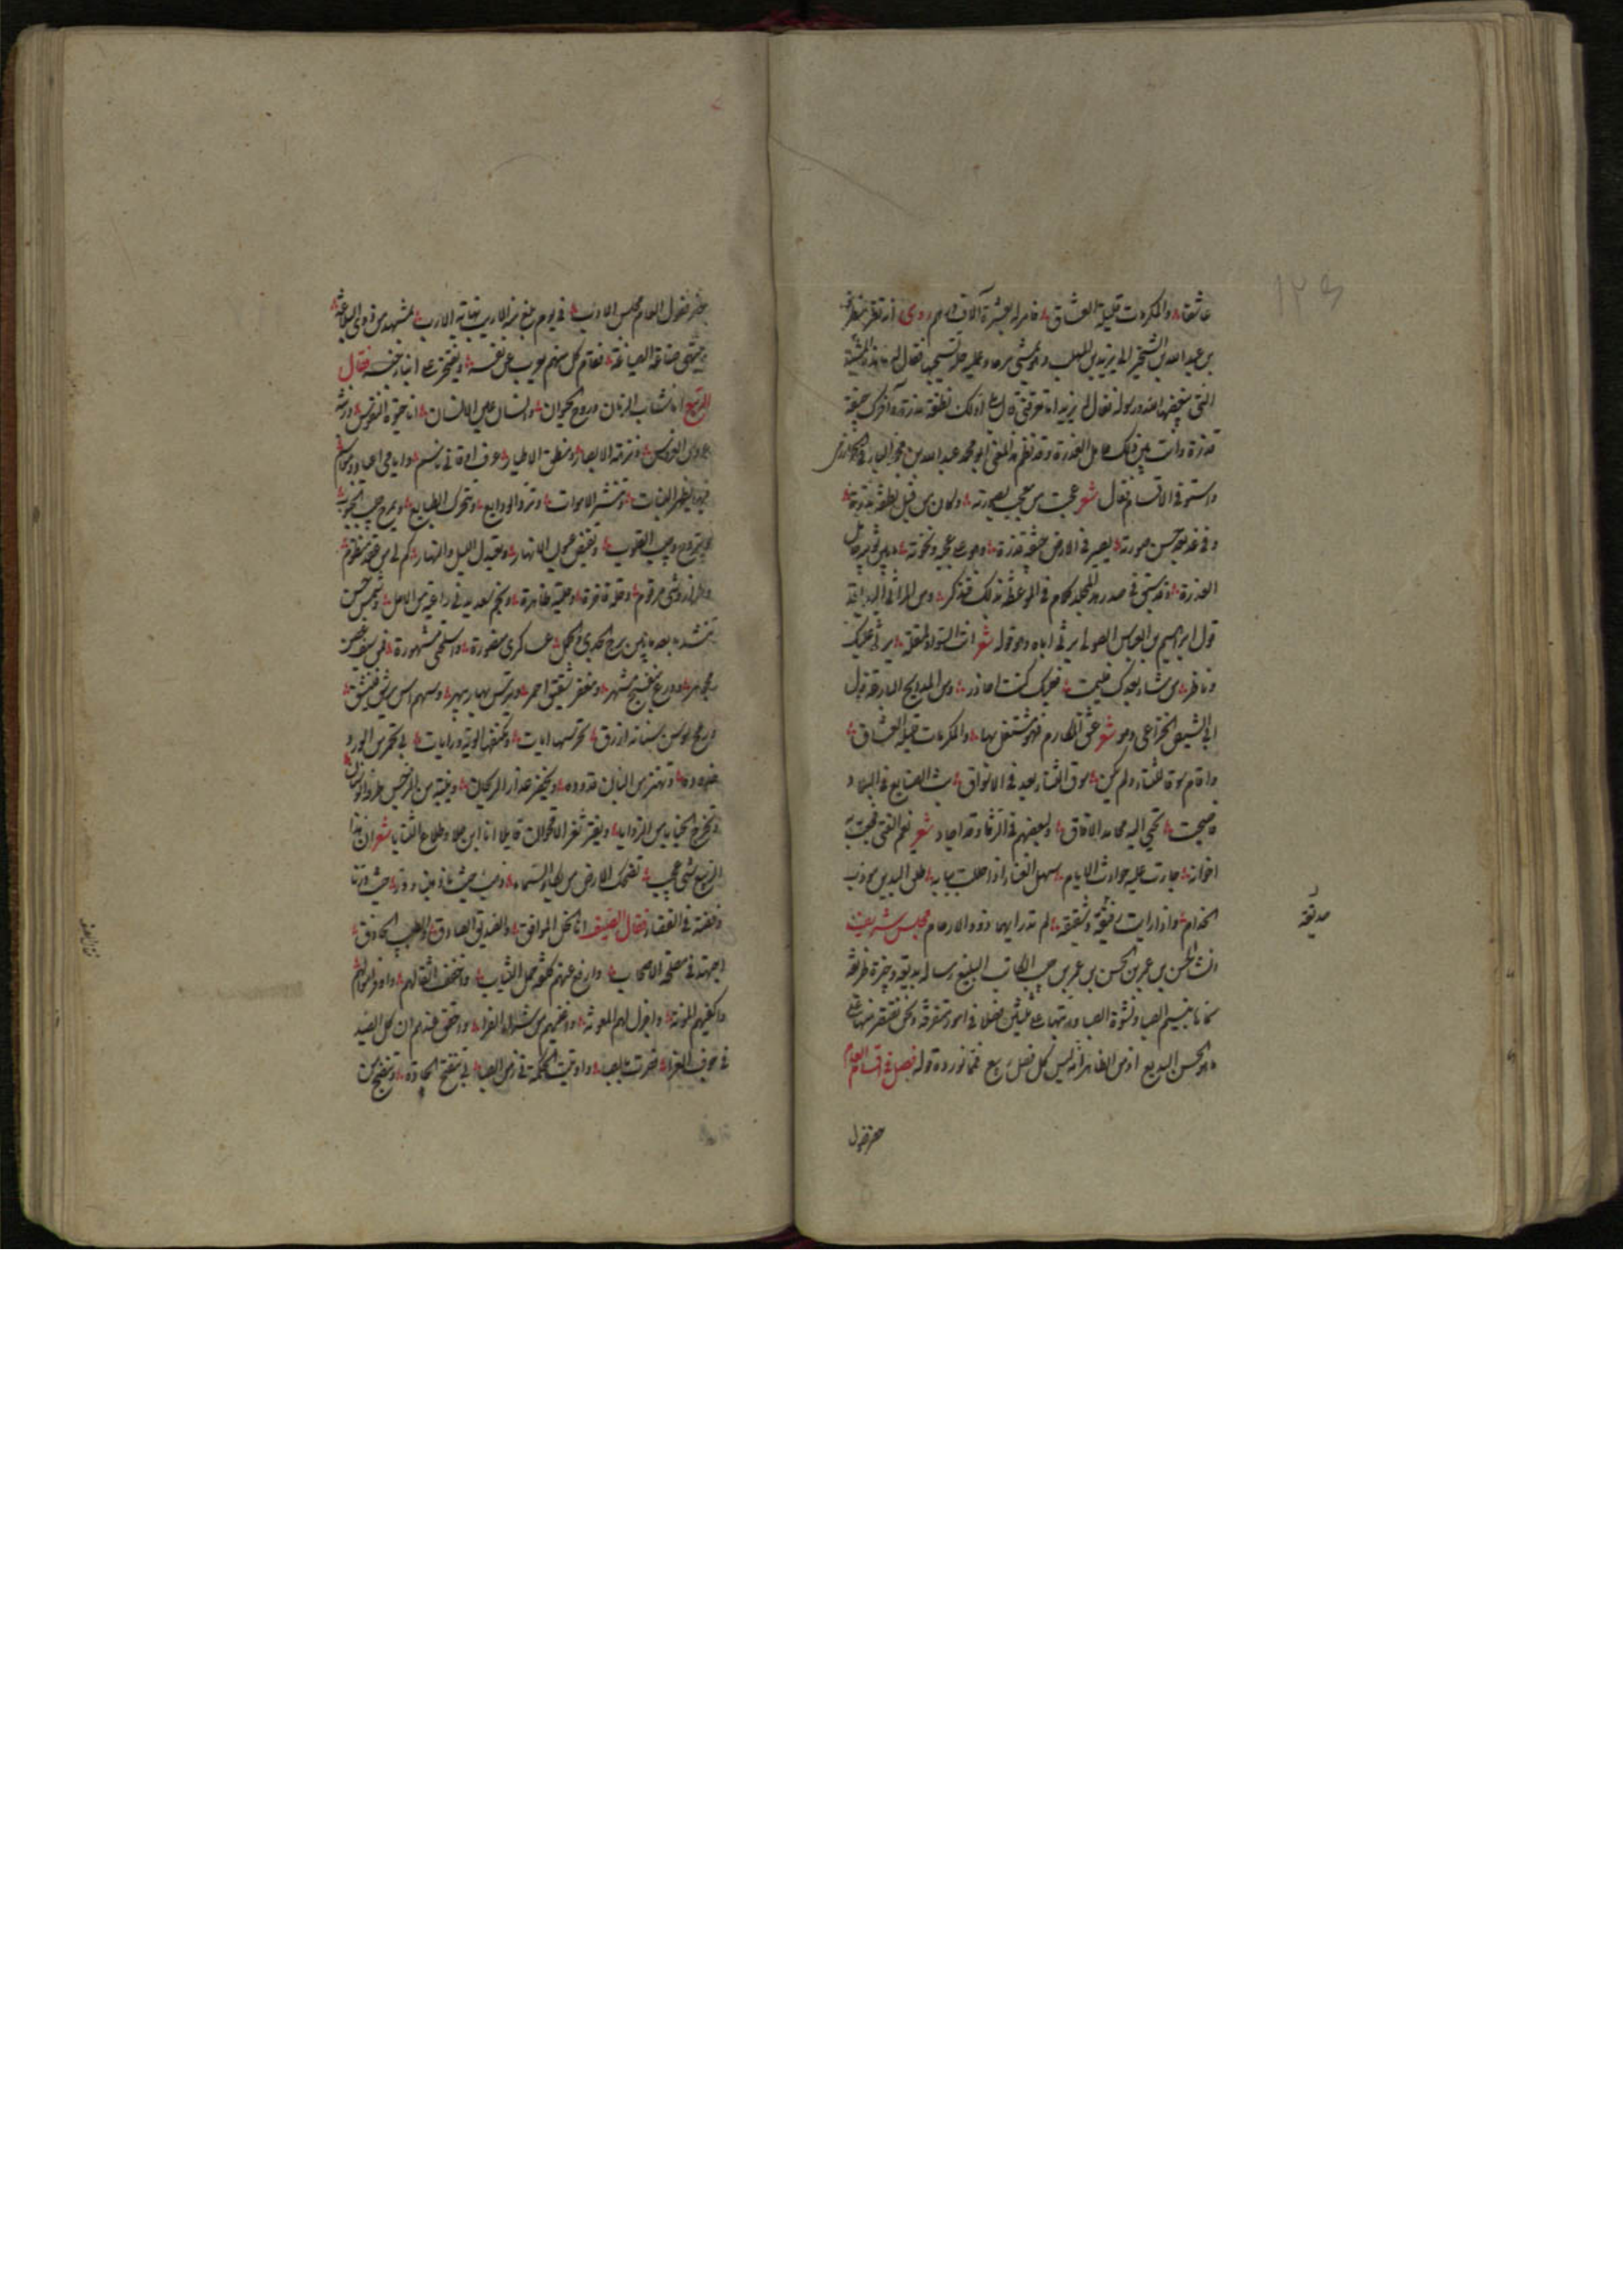 ١٢٤
عاشقا والمكرمات قليلة العشاق فامر له بعشرة آلاف درهم روى انه نظر مطرف
بن عبد الله بن الشخير الى يزيد بن المهلب وهو يمشى وعليه حلة يسحبها فقال له ما هذه المشية
التى يبغضها الله ورسوله فقال يزيد اما تعرفنى قال بلى اولك نطفة مذرة وآخرك جيفة
قذرة وانت بين ذلك حامل العذرة وقد نظم هذا المعنى ابو محمد عبد الله بن محمد
فقال شعر عجبت من معجب بصورته وكان من قبل نطفة مذرة
وفى غد بعد حسن صورته يصير فى الارض جيفة قذرة وهو على عجبه ونخوته ما بين ثوبيه حامل
العذرة وقد سبق فى صدر هذا المجلد كلام فى الموعظة فى ذلك فتذكر ومن المراثى
قول ابراهيم بن العباس الصولى يرثى ابنه وهو قوله شعر انت السواد لمقلة يبكى عليك
وناظر من شاء بعدك فليمت فعليك كنت احاذر ومن المدايح قول
ابى الشيص الخزاعى وهو شعر عشق المكارم فهو مشتغل بها والمكرمات قليلة العشاق
واقام سوقا للثناء ولم يكن سوق الثناء يعد فى الاسواق بث الصنايع فى البلاد
فاصبحت تجبى اليه محامد الآفاق ولبعضهم فى الرثا وقد اجاد شعر نعم الفتى فجعت به
اخوانه جارت عليه حوادث الايام سهل الفناء اذا حللت ببابه طلق اليدين مؤدب
الخدام واذا رايت شقيقه وصديقه لم تدر ايهما ذوو الارحام مجلس شريف
صديقه
انشا الحسن بن عمر بن الحسن بن عمر بن حبيب الكاتب البليغ رسالة بديعة وجيزة
سماها نسيم الصبا ونشوة الصبا ورتبها على ثلثين فصلا فى امور متفرقة ونحن نقتصر منها على
ما هو الحسن البديع فمما نورده قوله فصل فى اقسام العام
حضر فصول
حضر فصول العام مجلس الادب فى يوم بلغ منه الاريب نهاية الارب بمشهد من ذوى البلاغة
ومتقنى صناعة الصياغة فقام كل منهم يعرب عن نفسه ويفتخر على ابناء جنسه فقال
الربيع انا شاب الزمان وروح الحيوان وانسان عين الانسان انا حيوة النفوس وزينة
عروس الغروس ونزهة الابصار ومنطق الاطيار عرف اوقاتى ناسم وايامى اعياد ومواسم
فيها يظهر النبات وتنشر الاموات وترد الودايع وتتحرك الطبايع ويمرح جنيب الجنوب
وينزح وجيب القلوب وتفيض عيون الانهار ويعتدل الليل والنهار كم لى عقد منظوم
وطراز وشى مرقوم وحلة فاخرة وحلية ظاهرة ونجم سعد يدنى راعيه من الامل وشمس حسن
تنشد يا بعد ما بين برج الجدى والحمل عساكرى منصورة واسلحتى مشهورة فمن سيف غصن
مجوهر ودرع بنفسج مشهر ومغفر شقيق احمر وترس بهار يبهر وسهم آس يرشق فينشق
ورمح سوسن سنانه ازرق تحرسها آيات وتكنفها الوية ورايات بى تحمر من الورد
خدوده وتهتز من البان قدوده ويخضر عذار الريحان وينتبه من النرجس طرفه الوسنان
وتخرج الخبايا من الزوايا ويفتر ثغر الاقحوان قايلا انا ابن جلا وطلاع الثنايا شعر ان هذا
الربيع شئ عجيب تضحك الارض من بكاء السماء ذهب حيث ما ذهبنا ودر حيث درنا
وفضة فى الفضاء فقال الصيف انا الخل الموافق والصديق الصادق والطبيب الحاذق
اجتهد فى مصلحة الاصحاب وارفع عنهم كلفة حمل الثياب واخفف اثقالهم واوفر اموالهم
واكفيهم المؤنة واجزل لهم المعونة واغنيهم عن شراء الفرا واحقق عندهم ان كل الصيد
فى جوف الفرا نصرت بالصبا واوتيت الحكمة فى زمن الصبا بى تتضح الجادة وتنضج من